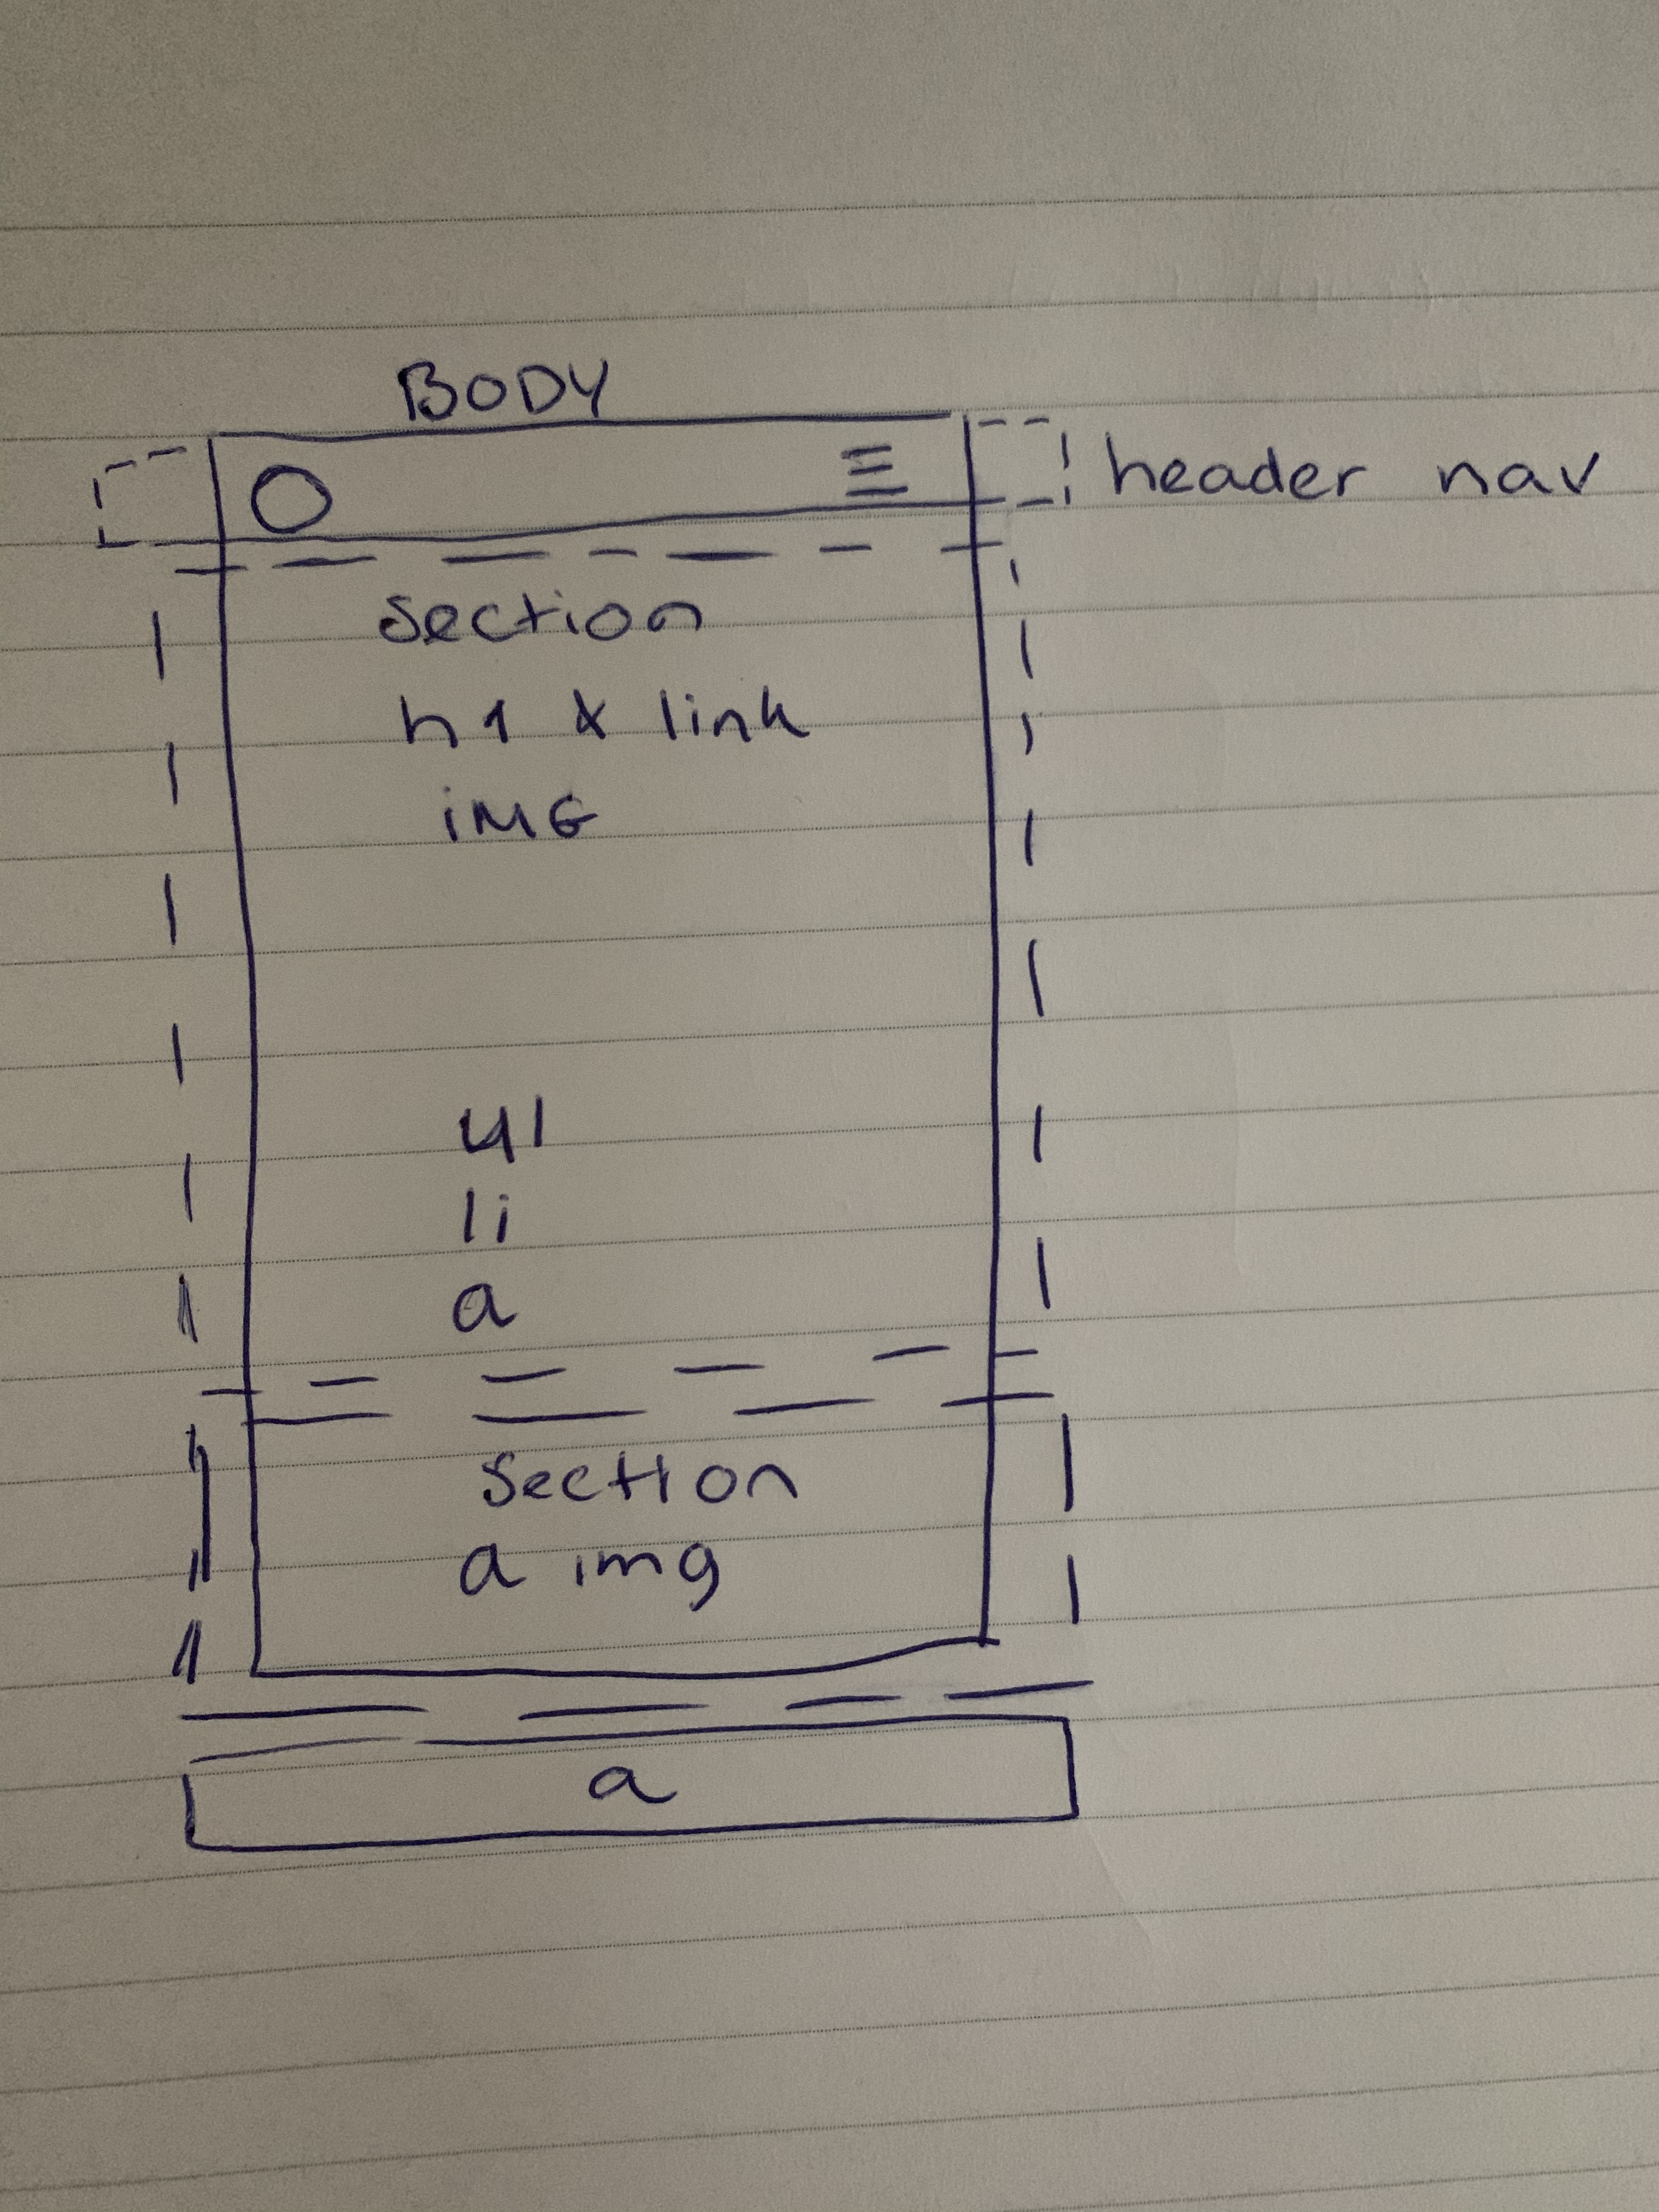 BODY
header nav
Section
h1 & link
iMG
ul
li
a
Section
a img
a